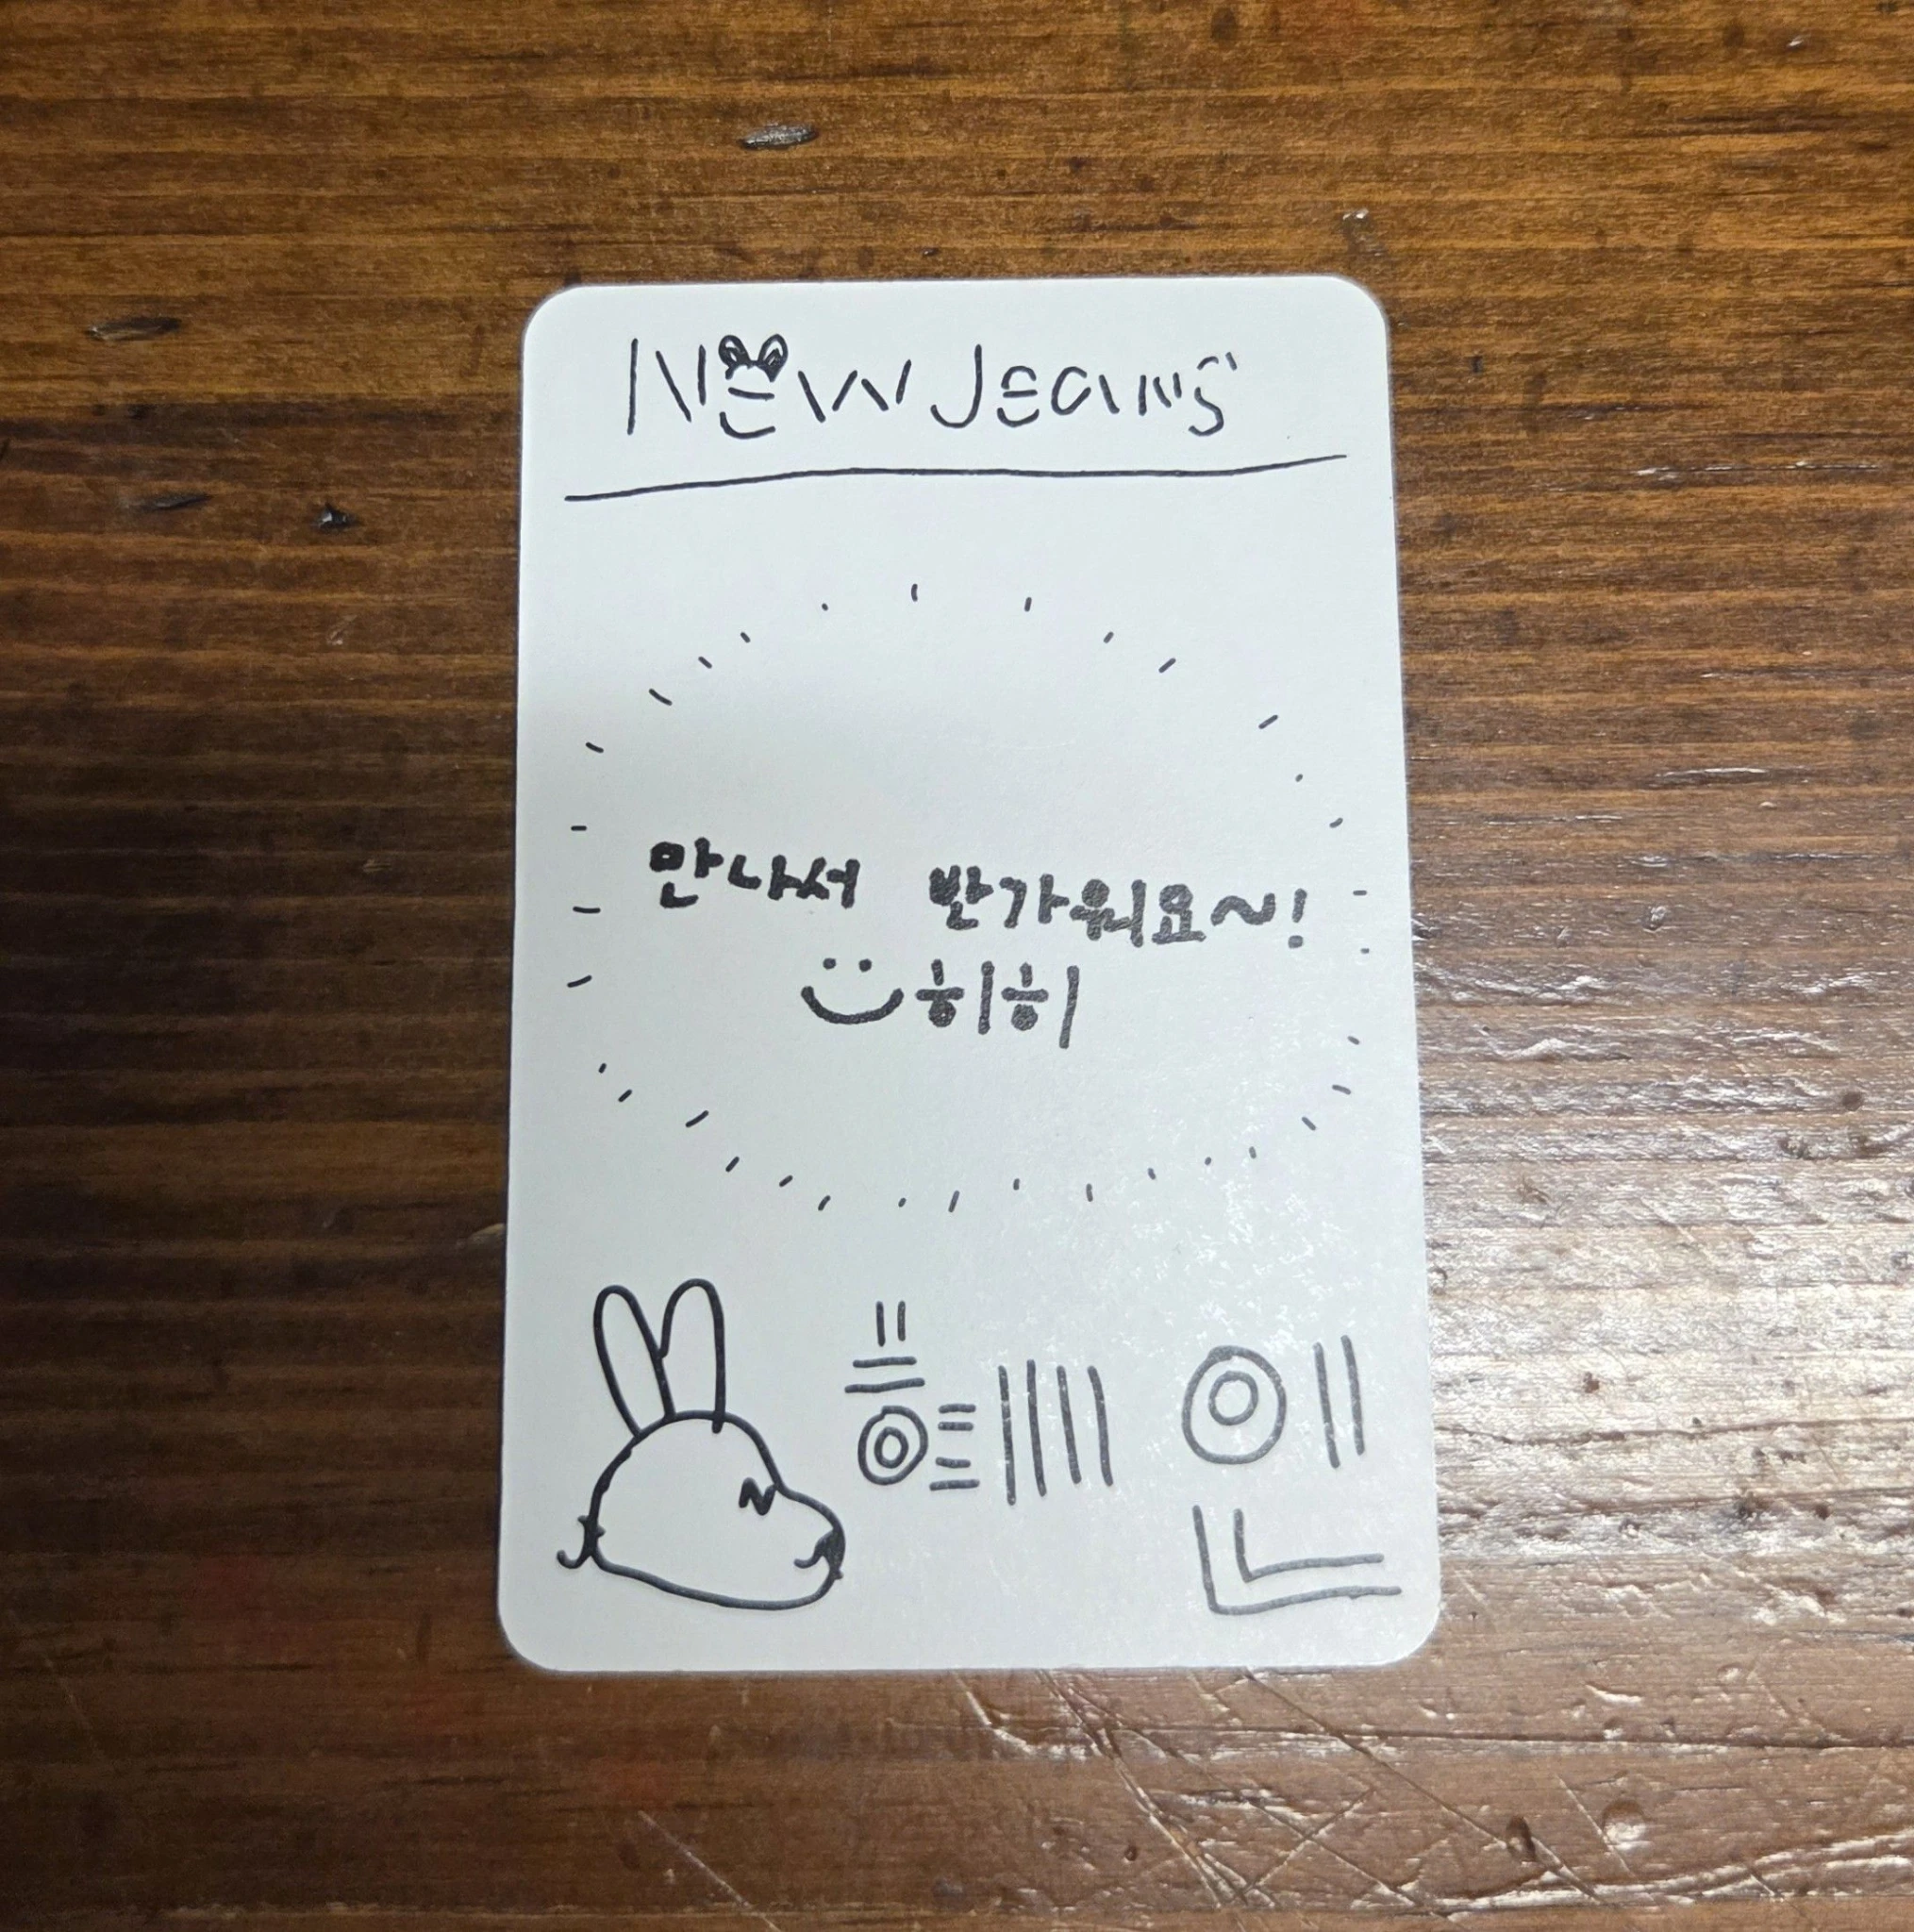 NewJeans
만나서 반가워요~!
히히
혜인